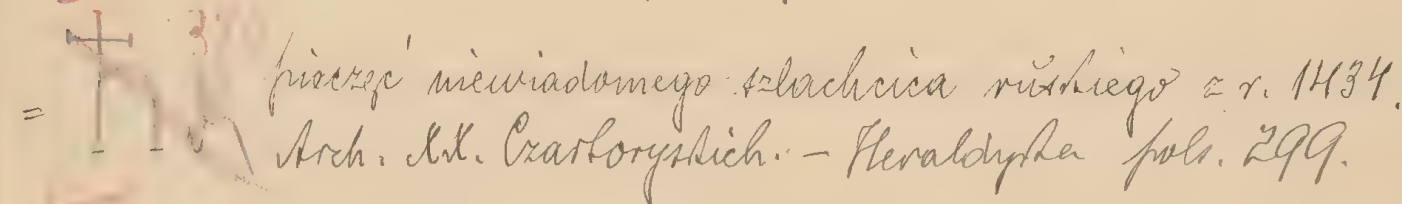 = pieczęć niewiadomego szlachcica ruskiego z r. 1434.
Arch. XX. Czartoryskich. – Heraldyka pols. 299.